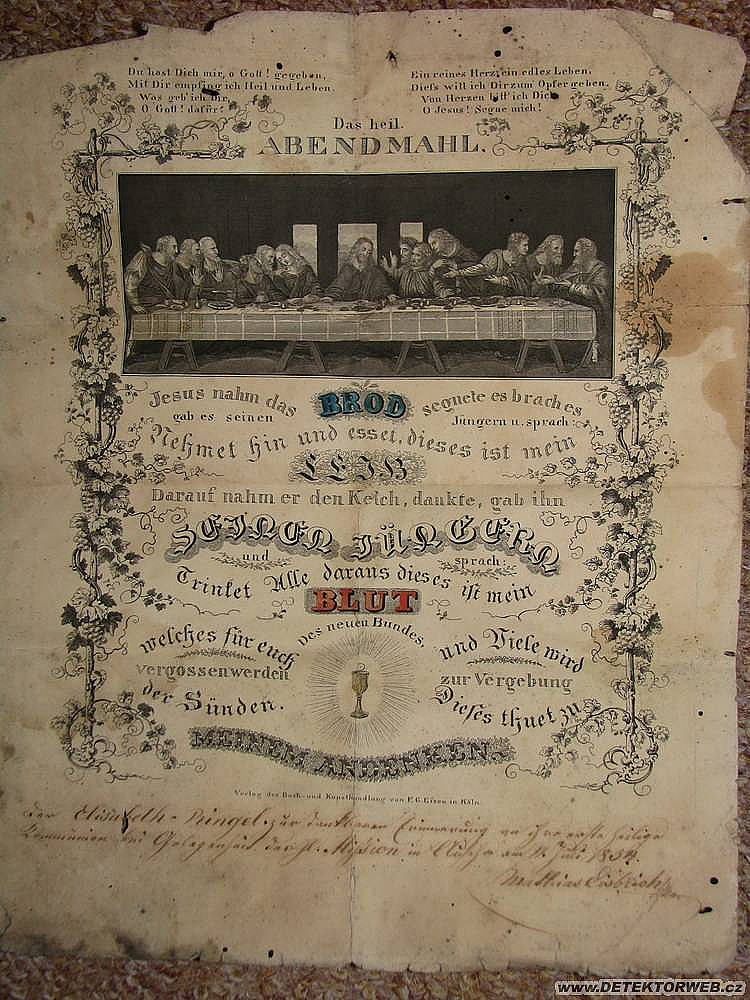 Du hast Dich mir, o Gott! gegeben,
Mit Dir empfing ich Heil und Leben.
Was geb' ich Dir
O Gott! dafür?
Ein reines Herz, ein edles Leben,
Diefs will ich Dir zum Opfer geben,
Von Herzen bitt' ich Dich
O Jesus! Segne mich!
Das heil.
ABENDMAHL.
Jesus nahm das BROD segnete es brach es
gab es seinen Jüngern u. sprach:
Nehmet hin und esset, dieses ist mein
LEIB
Darauf nahm er den Kelch, dankte, gab ihn
SEINEN JÜNGERN
und sprach:
Trinket Alle daraus dieses ist mein
BLUT
des neuen Bundes,
welches für euch und Viele wird
vergossen werden zur Vergebung
der Sünden. Dieses thuet zu
MEINEM ANDENKEN.
Verlag der Buch- und Kunsthandlung von F.C. Eisen in Köln.
der Elisabeth Ringel zur dankbaren Erinnerung an ihre erste heilige
Kommunion bei Gelegenheit der hl. Mission in am Juli
Mathias
www.DETEKTORWEB.cz